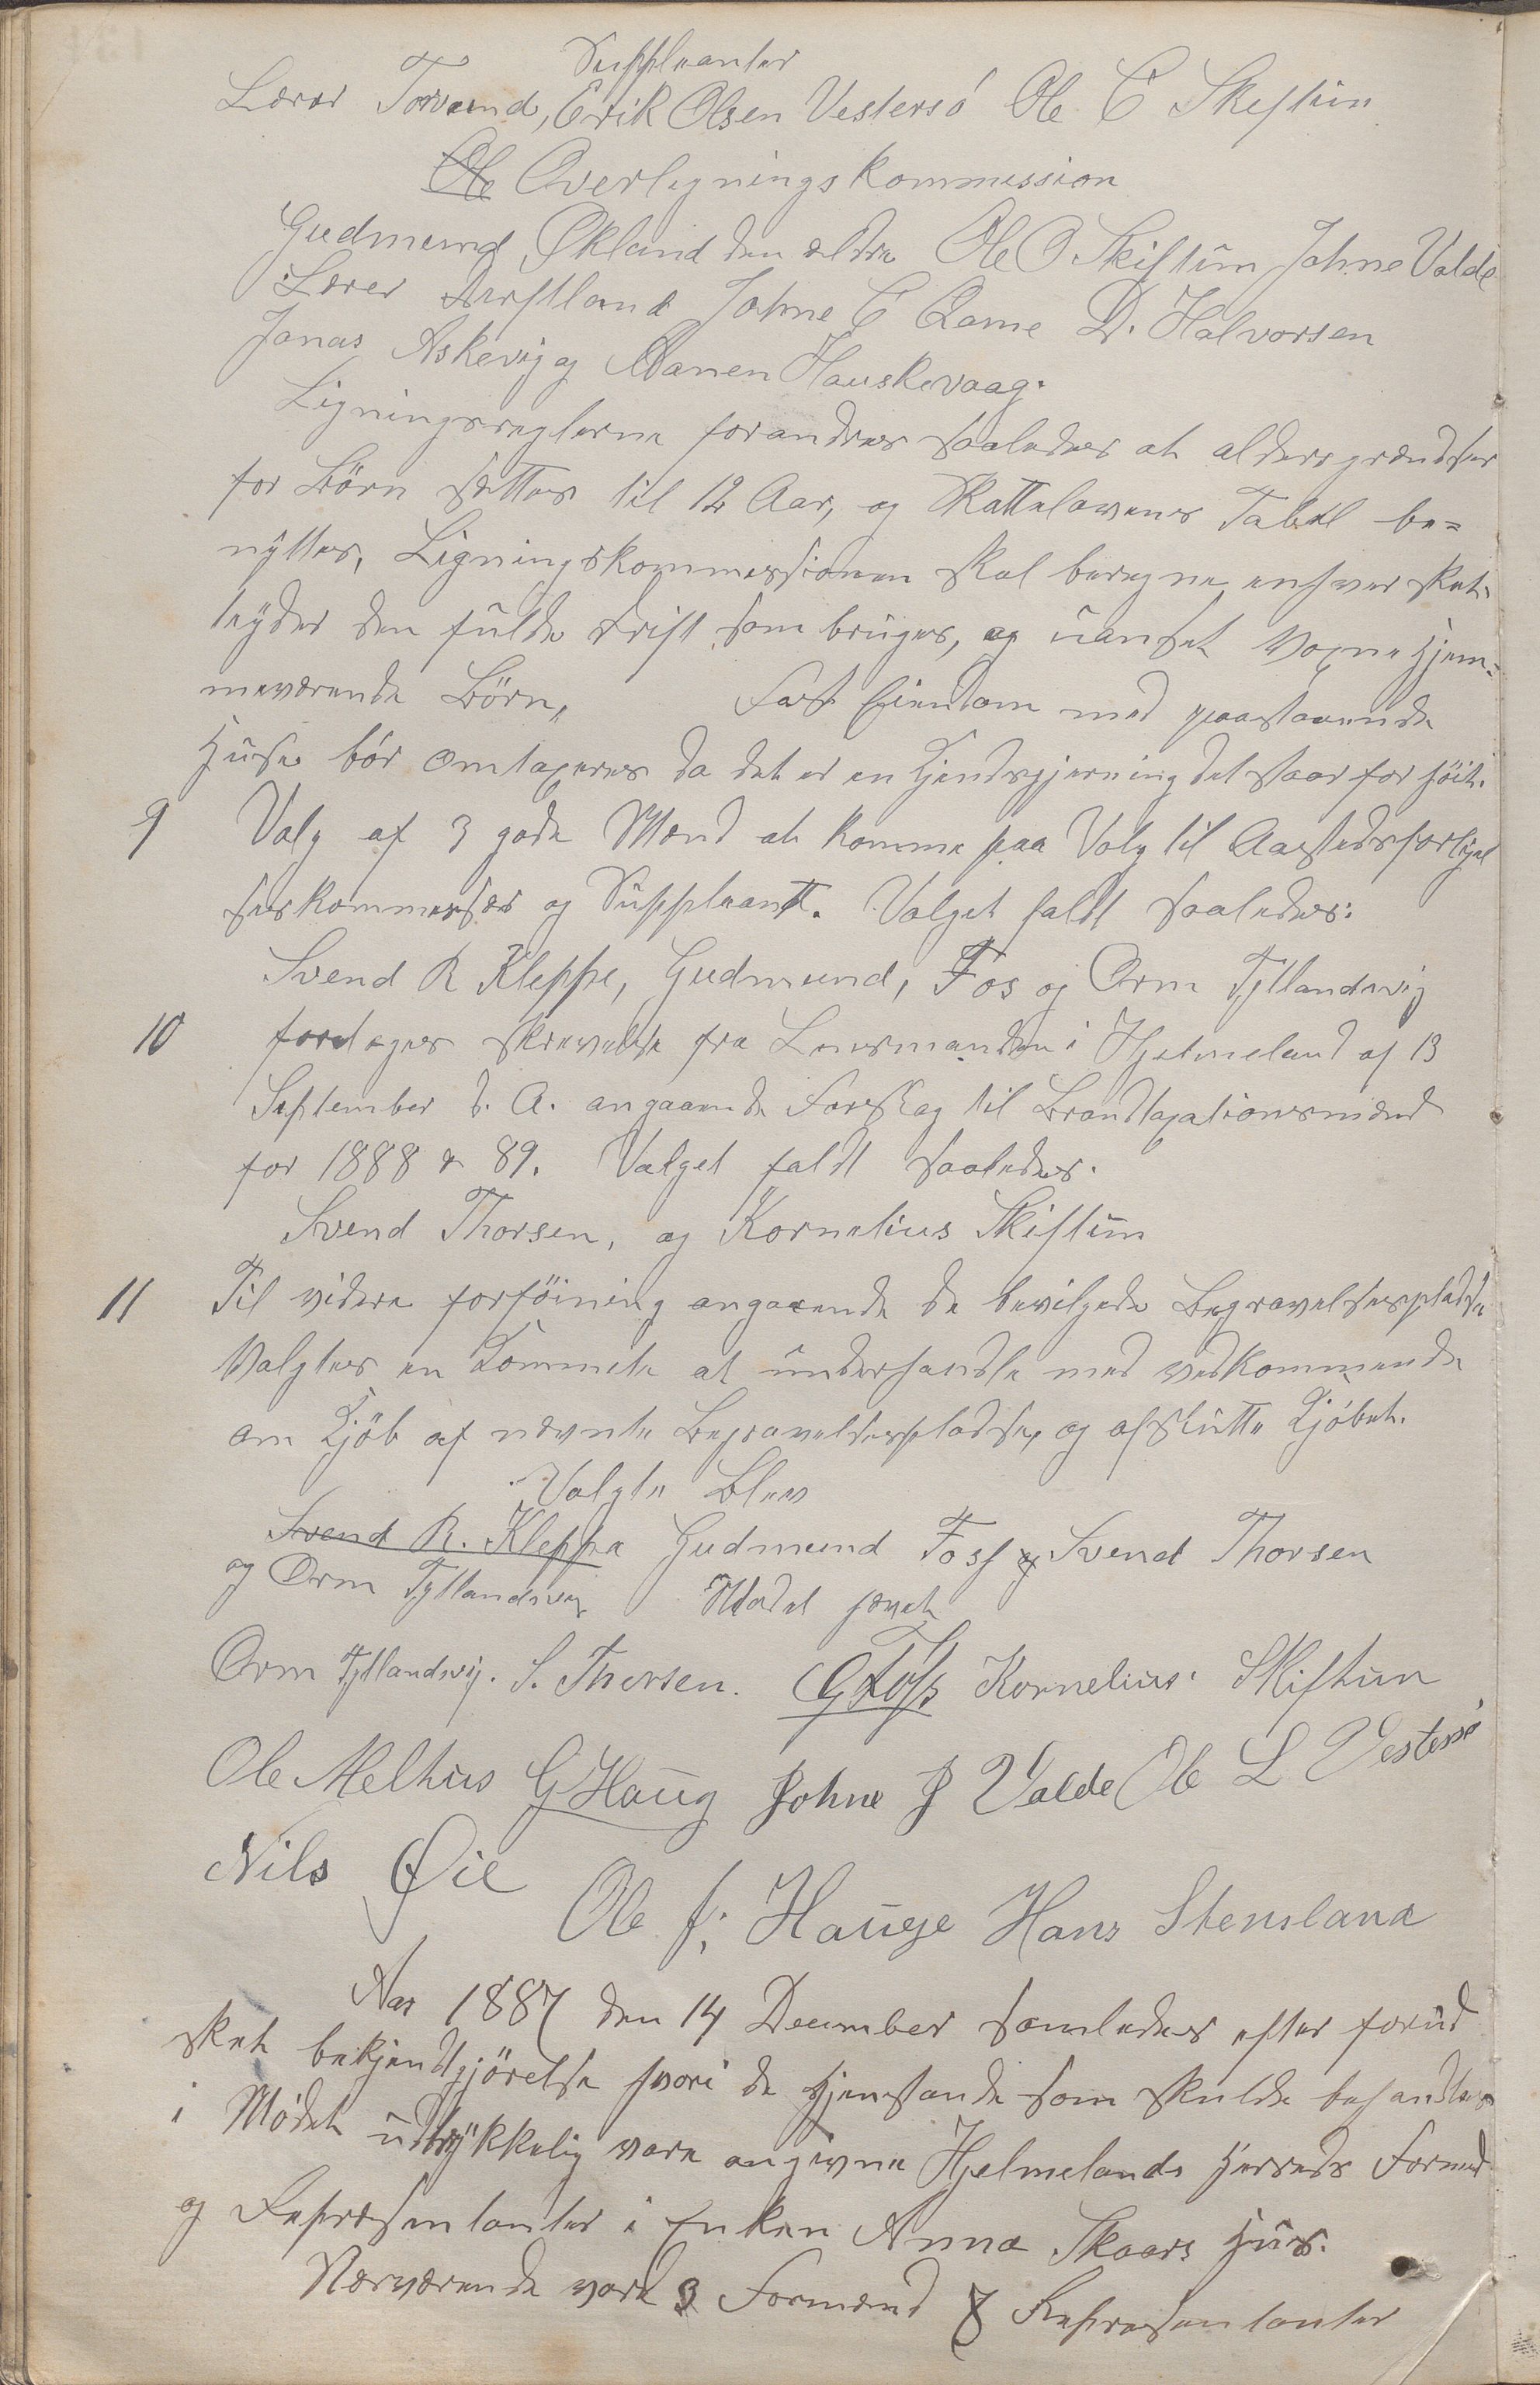 Suppleanter
Lærer Torvund, Erik Olsen Vestersö Ole C Skiftun
Ole Overligningskommission
Gudmund Økland den ældre Ole O. Skiftun Johne Valde
Lærer Johne C Rame D. Halvorsen
Jonas Askevig og Aanen Hauskevaag.
Ligningsreglerne forandres saaledes at aldersgrændsen
for Börn sættes til 12 Aar, og Skattelovens Tabel be=
nyttes, Ligningskommissionen skal beregne enhver skat-
tyder den fulde drift som bruges, og uanset voxne hjem=
meværende Börn, Fast Eiendom med paastaaende
Huse bör omtaxeres da det er en Kjendsgjerning det staar for höit.
9 Valg af 3 gode Mænd at komme paa Valg til Aastedsforligel
seskommissær og Suppleant. Valget faldt saaledes:
Svend R Kleppe, Gudmund, Fos og Orm Tytlandsvig
10 foretages skrivelse fra Lensmanden i Hjelmeland af 13
September d. A. angaaende Forslag til Brandtaxationsmænd
for 1888 & 89. Valget faldt saaledes.
Svend Thorsen, og Kornelius Skiftun
11 Til videre forföining angaaende de bevilgede Begravelsespladse
Valgtes en Kommite at underhandle med vedkommende
om Kjöb af nævnte Begravelsespladse, og afslutte Kjöbet.
Valgte blev
Svend R. Kleppa Gudmund Foss & Svend Thorsen
og Orm Tytlandsvig Mödet hævet
Orm Tytlandsvig. S. Thorsen. G Foss Kornelius Skiftun
Ole Melhus G Haug Johne J Valde Ole L Vestersö
Nils Øie
Ole J. Hauge Hans Stensland
Aar 1887 den 14 December samledes efter forud
skeet bekjendtgjörelse hvori de Gjenstande som skulde behandles
i Mödet udtrykkelig vare angivne Hjelmelands Herreds Formænd
og Repræsentanter i Enken Anna Skaars Hus.
Nærværende vare 3 Formænd 8 Repræsentanter